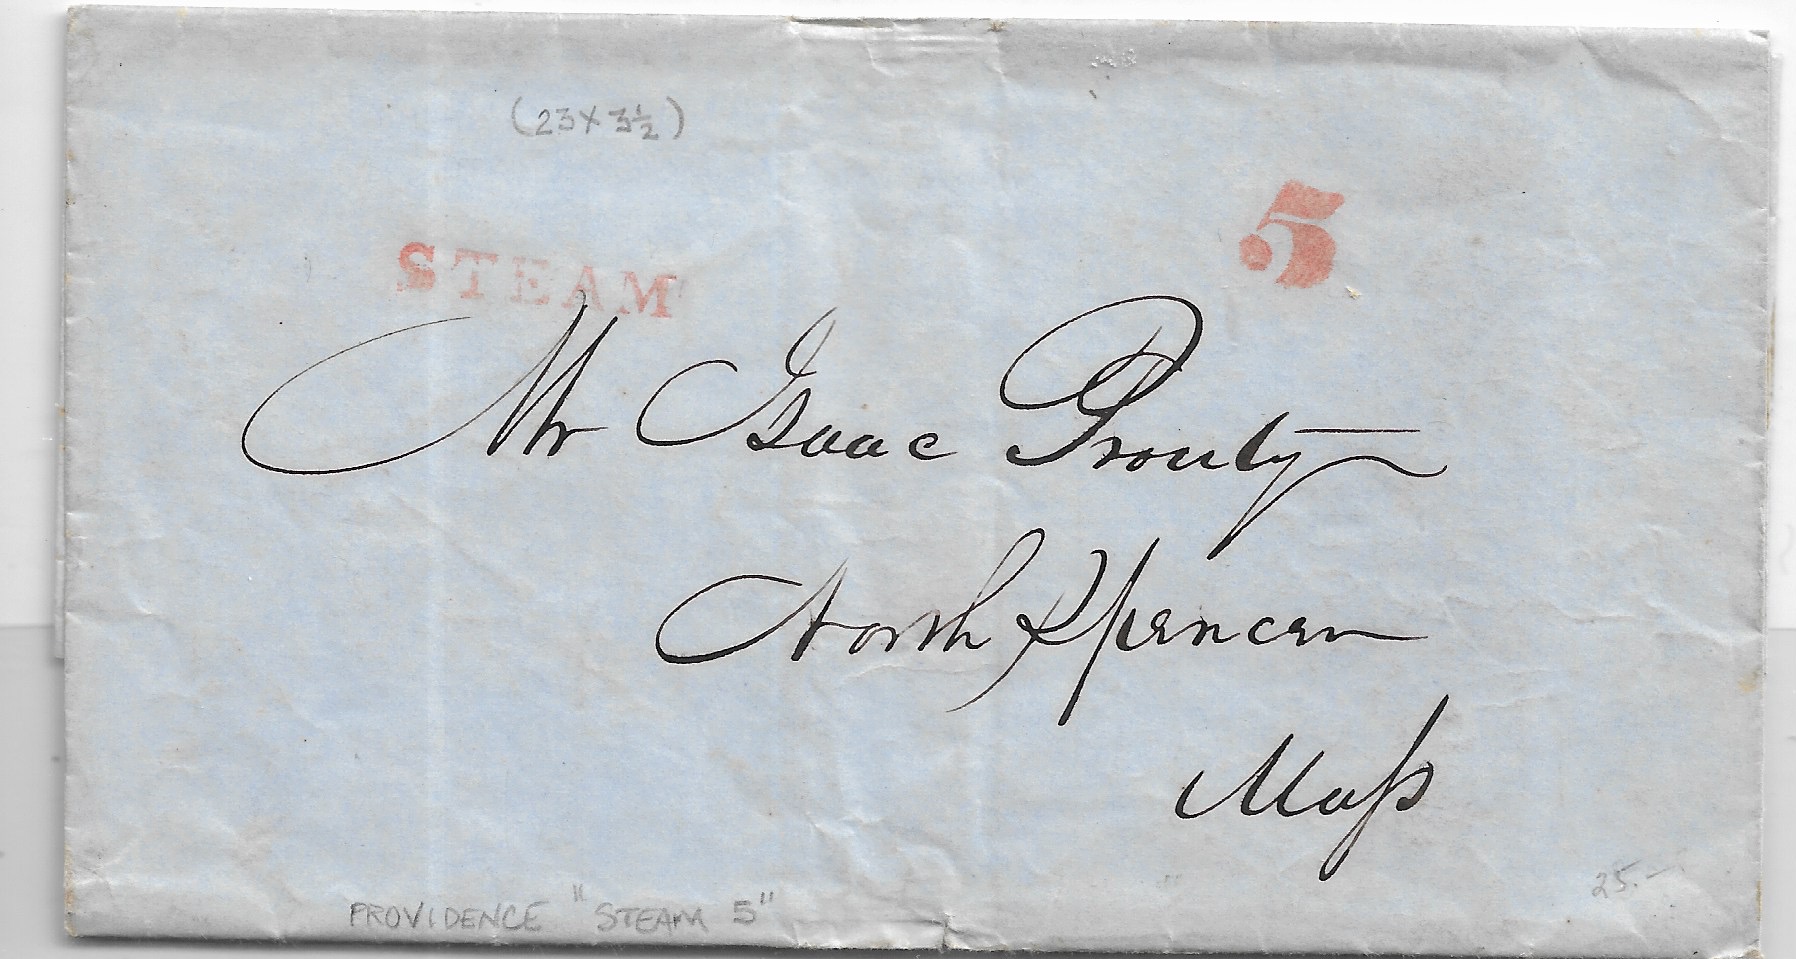 (23 x 3½)
5
STEAM
Mr Isaac Prouty
North Spencer
Mass
25.-
PROVIDENCE "STEAM 5"